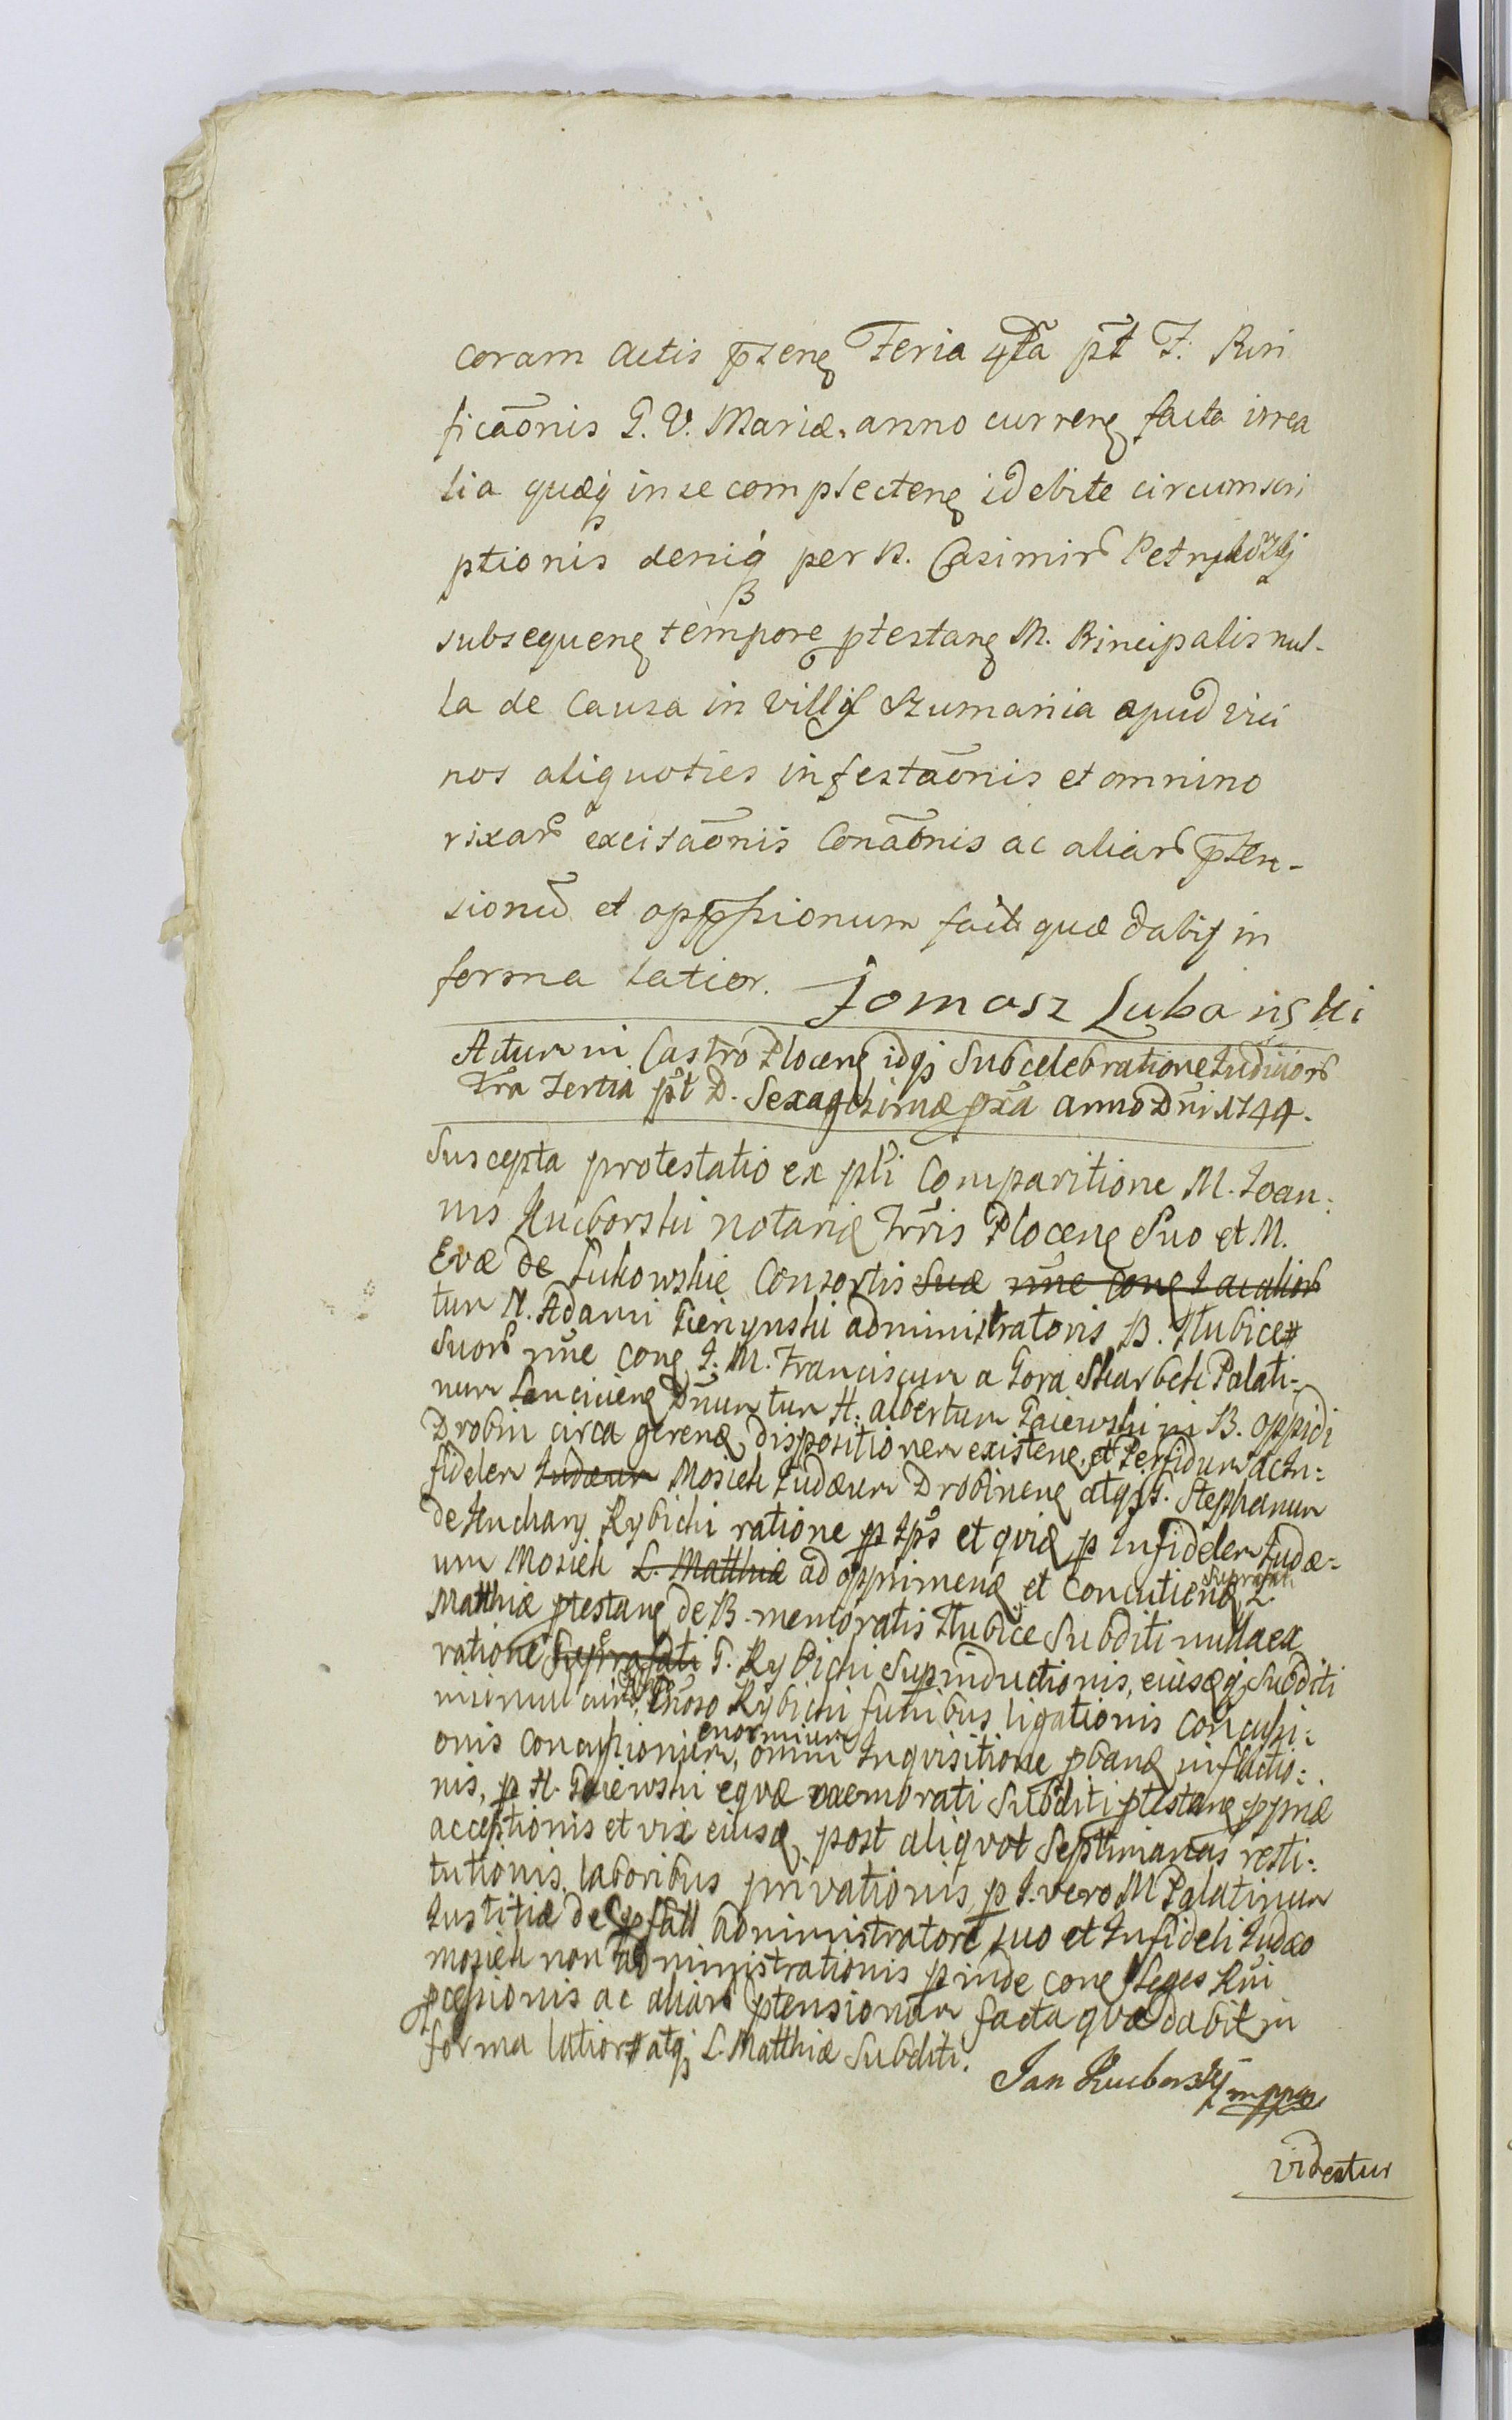 coram actis p̃senꝫ Feria 4tã pt̃ F. Puri
ficãonis B. V. Mariæ. anno currenꝫ facta irrea
lia quæq̃ in se complectenꝫ idebite circumscri
ptionis deniq̃ per N. Casimirũ
subsequenꝫ tempore ptestanꝫ M. Principalis nul-
la de Causa in Szumania apud vici
nos aliquoties infestãonis et omnino
rixarũ excitãonis Conãonis ac aliarũ p̃ten-
sionũ et opp̃ssionum facta quæ dabit in
forma latior. Tomasz Lubanski
Actum in Castro Plocenꝫ idqꝫ sub celebratione Judiciorũ
Fra tertia pt̃ D. Sexagesimæ pxã anno Dñi 1744.
Suscepta protestatio ex pli Comparitione M. Joan:
nis Kucborski notarii Trr̃is Plocenꝫ Suo et M.
Evæ de Sukowskie Consortis Suæ
tum N. Adami administratoris B. Hubice #
Suorũ nñe conꝫ J. M. Franciscum a Gora Skarbek Palati-
num Lancicienꝫ Dñum tum H. albertum Gaiewski in B. oppidi
Drobin circa gerenꝫ dispositionem existenꝫ, et Perfidum ac In:
fidelem Judæum Mosiek Judæum Drobinenꝫ atqꝫ G. Stephanum
de Kuchary Rybicki ratione p Ips et p Infidelem Judæ-
um Mosiek L. Matthiæ ad opprimenꝫ et Concutienꝫ suprafati L.
Matthiæ ptestanꝫ de B. memoratis Hubice Subditi nulla ex
ratione suprafati G. Rybicki Supinductionis, eiusdꝫ Subditi
Rybicki funibus ligationis
onis enormium, omni Inquisitione inflictio:
nis, p H. Gaiewski equæ memorati Subditi ptestanꝫ ppriæ
acceptionis et vix eiusdꝫ post aliquot Septimanas resti:
tutionis, laboribus privationis, p J. vero M Palatinum
Justitiæ de pfatt administratore suo et Infideli Judæo
mosiek non administrationis pinde conꝫ Leges Rñi
pcessionis ac aliarũ ptensionum facta quæ dabit in
forma latior # atqꝫ L. Matthiæ Subditi.
Jan Kucborskj mppa
videatur